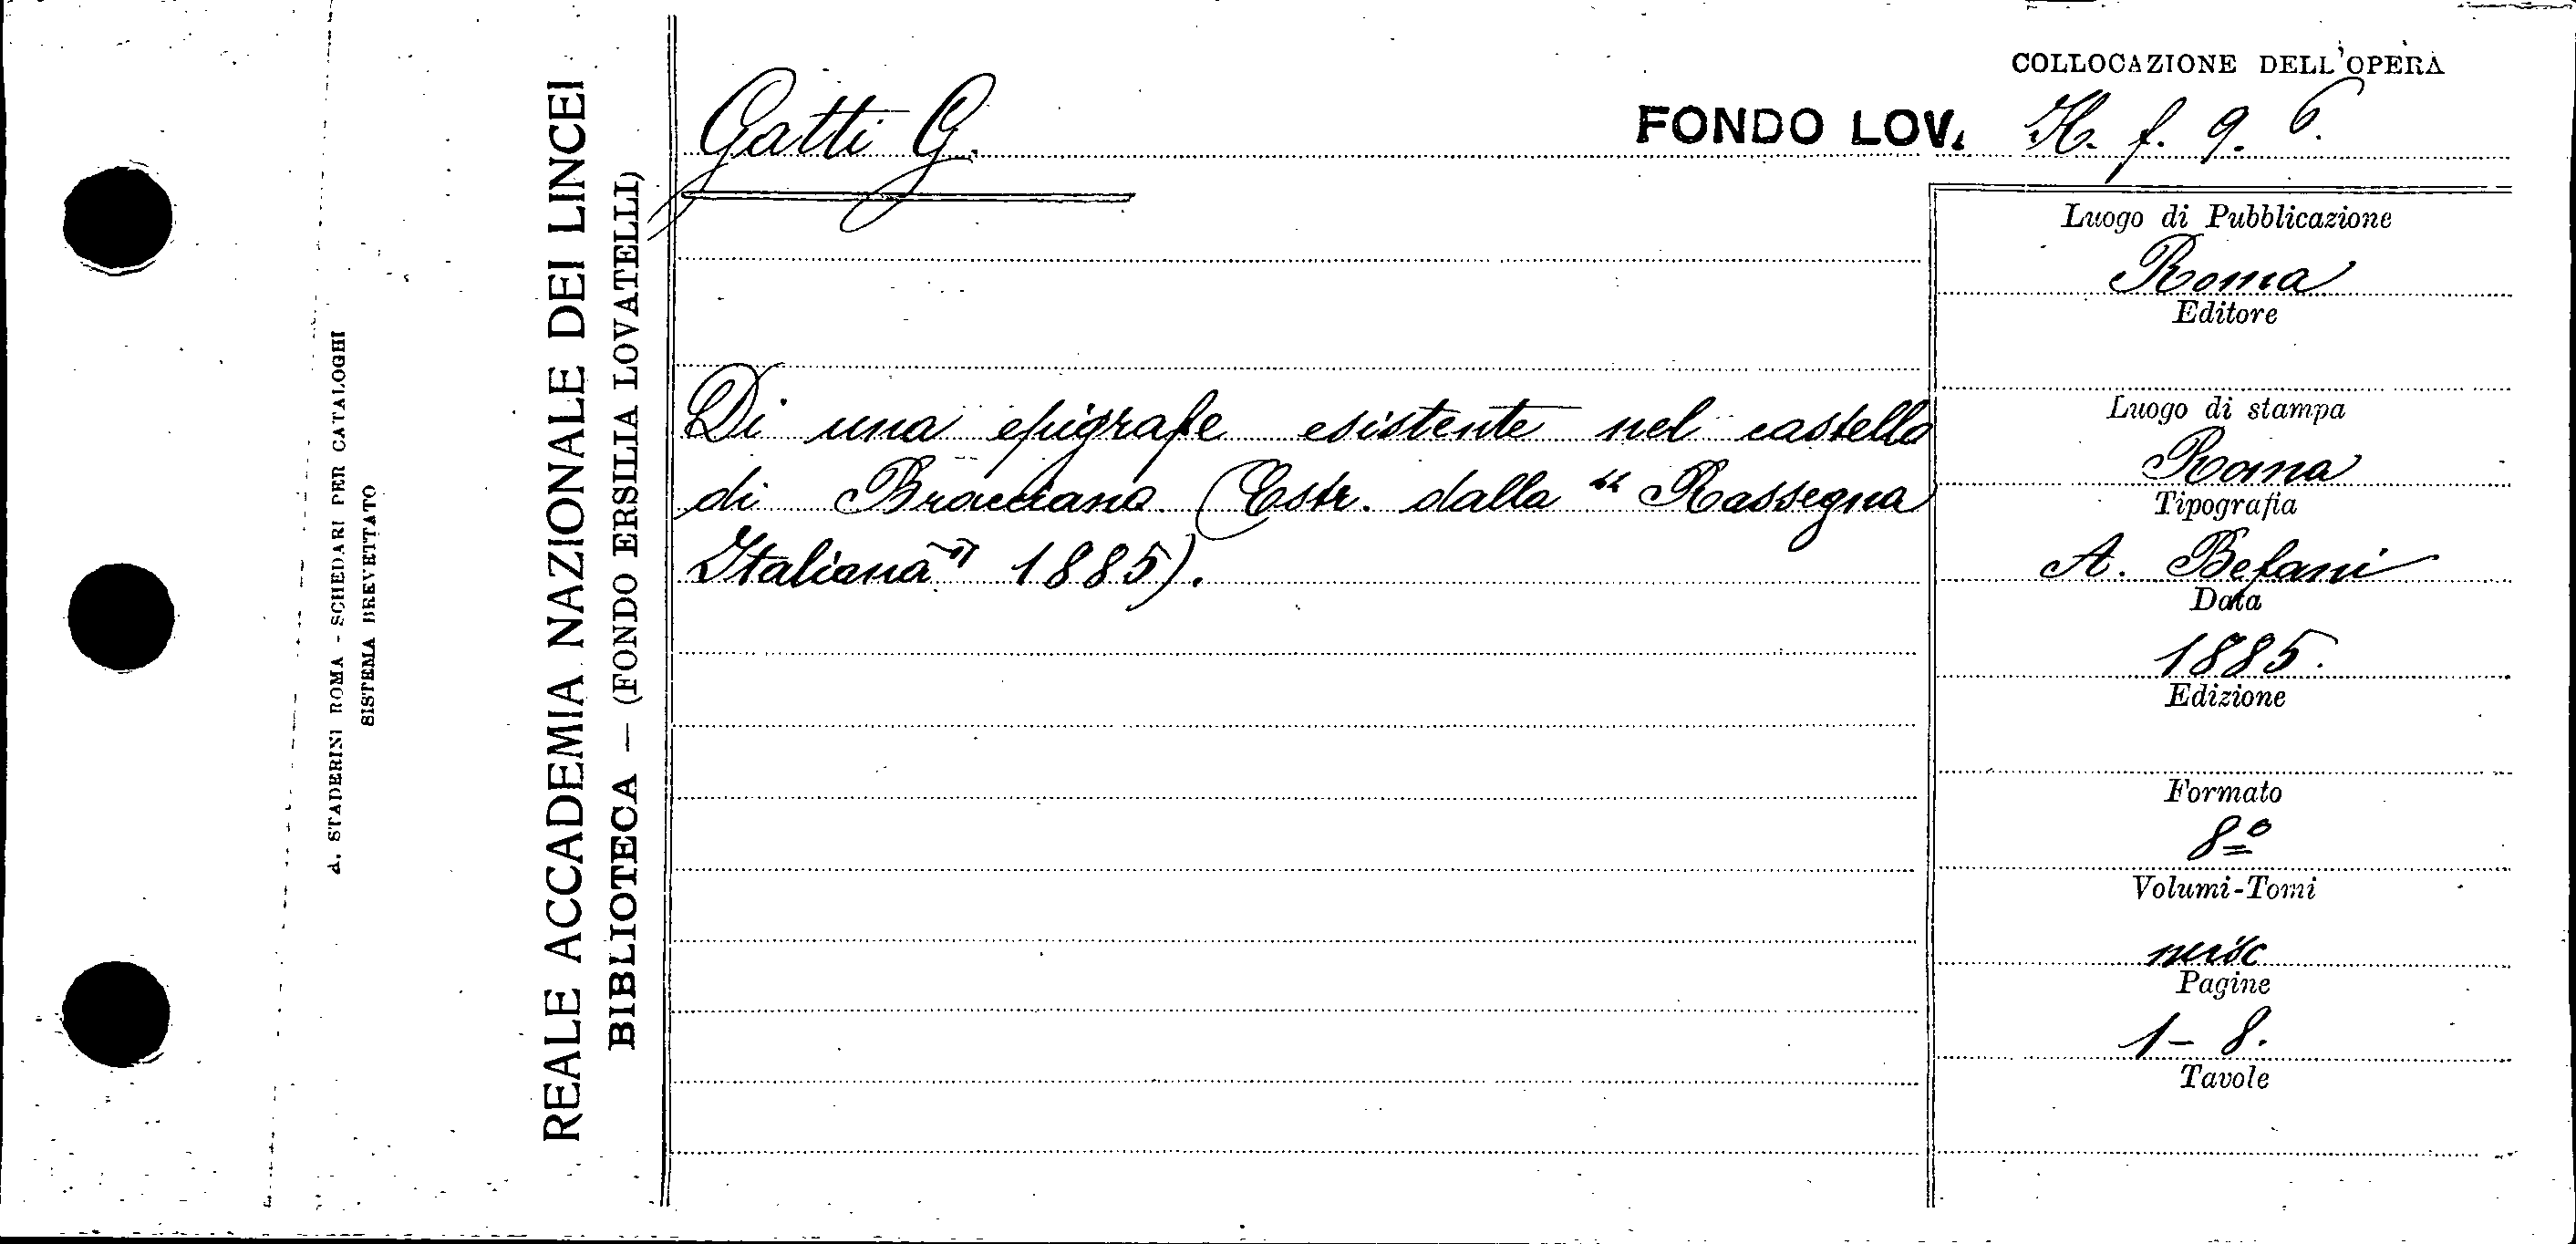 A. STADERINI ROMA - SCHEDARI PER CATALOGHI
SISTEMA BREVETTATO
REALE ACCADEMIA NAZIONALE DEI LINCEI
BIBLIOTECA — (FONDO ERSILIA LOVATELLI)
COLLOCAZIONE DELL'OPERA
Gatti G.
FONDO LOV. H. f. 9. 6.
Di una epigrafe esistente nel castello
di Bracciano (Estr. dalla "Rassegna
Italiana" 1885).
Luogo di Pubblicazione
Roma
Editore
Luogo di stampa
Roma
Tipografia
A. Befani
Data
1885.
Edizione
Formato
8º
Volumi-Tomi
misc
Pagine
1-8.
Tavole